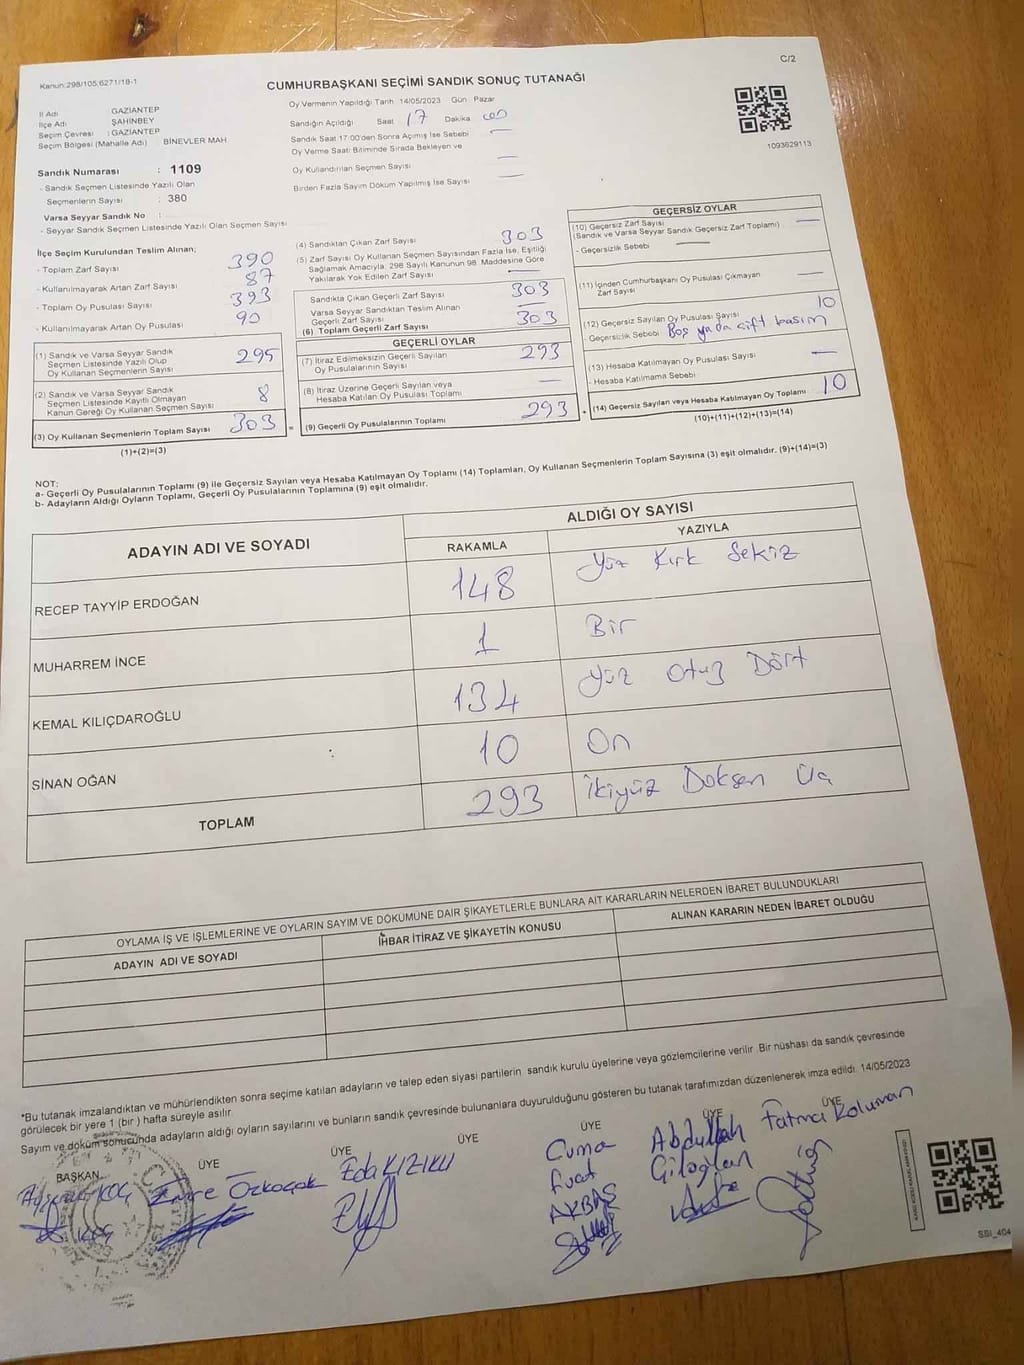 C/2
Kanun:298/105;6271/18-1
CUMHURBAŞKANI SEÇİMİ SANDIK SONUÇ TUTANAĞI
İl Adı GAZIANTEP
İlçe Adı ŞAHİNBEY
Seçim Çevresi : GAZIANTEP
Seçim Bölgesi (Mahalle Adı) BİNEVLER MAH
Sandık Numarası : 1109
- Sandık Seçmen Listesinde Yazılı Olan
Seçmenlerin Sayısı : 380
Varsa Seyyar Sandık No :
- Seyyar Sandık Seçmen Listesinde Yazılı Olan Seçmen Sayısı
Oy Vermenin Yapıldığı Tarih 14/05/2023 Gün Pazar
Sandığın Açıldığı Saat 17 Dakika
Sandık Saat 17:00'den Sonra Açımış İse Sebebi —
Oy Verme Saati Bitiminde Sırada Bekleyen ve
Oy Kullandırılan Seçmen Sayısı —
Birden Fazla Sayım Döküm Yapılmış İse Sayısı —
1093629113
İlçe Seçim Kurulundan Teslim Alınan;
- Toplam Zarf Sayısı 390
- Kullanılmayarak Artan Zarf Sayısı 87
- Toplam Oy Pusulası Sayısı 393
- Kullanılmayarak Artan Oy Pusulası 90
(1) Sandık ve Varsa Seyyar Sandık
Seçmen Listesinde Yazılı Olup
Oy Kullanan Seçmenlerin Sayısı 295
(2) Sandık ve Varsa Seyyar Sandık
Seçmen Listesinde Kayıtlı Olmayan
Kanun Gereği Oy Kullanan Seçmen Sayısı 8
(3) Oy Kullanan Seçmenlerin Toplam Sayısı 303
(1)+(2)=(3)
(4) Sandıktan Çıkan Zarf Sayısı 303
(5) Zarf Sayısı Oy Kullanan Seçmen Sayısından Fazla İse, Eşitliği
Sağlamak Amacıyla; 298 Sayılı Kanunun 98. Maddesine Göre
Yakılarak Yok Edilen Zarf Sayısı —
Sandıkta Çıkan Geçerli Zarf Sayısı 303
Varsa Seyyar Sandıktan Teslim Alınan
Geçerli Zarf Sayısı —
(6) Toplam Geçerli Zarf Sayısı 303
GEÇERLİ OYLAR
(7) İtiraz Edilmeksizin Geçerli Sayılan
Oy Pusulalarının Sayısı 293
(8) İtiraz Üzerine Geçerli Sayılan veya
Hesaba Katılan Oy Pusulası Toplamı —
= (9) Geçerli Oy Pusulalarının Toplamı 293
GEÇERSİZ OYLAR
(10) Geçersiz Zarf Sayısı
(Sandık ve Varsa Seyyar Sandık Geçersiz Zarf Toplamı) —
- Geçersizlik Sebebi —
(11) İçinden Cumhurbaşkanı Oy Pusulası Çıkmayan
Zarf Sayısı —
(12) Geçersiz Sayılan Oy Pusulası Sayısı 10
- Geçersizlik Sebebi Boş ya da çift basım
(13) Hesaba Katılmayan Oy Pusulası Sayısı —
- Hesaba Katılmama Sebebi
+ (14) Geçersiz Sayılan veya Hesaba Katılmayan Oy Toplamı 10
(10)+(11)+(12)+(13)=(14)
NOT:
a- Geçerli Oy Pusulalarının Toplamı (9) ile Geçersiz Sayılan veya Hesaba Katılmayan Oy Toplamı (14) Toplamları, Oy Kullanan Seçmenlerin Toplam Sayısına (3) eşit olmalıdır. (9)+(14)=(3)
b- Adayların Aldığı Oyların Toplamı, Geçerli Oy Pusulalarının Toplamına (9) eşit olmalıdır.
ADAYIN ADI VE SOYADI
ALDIĞI OY SAYISI
RAKAMLA YAZIYLA
RECEP TAYYİP ERDOĞAN 148 Yüz Kırk Sekiz
MUHARREM İNCE 1 Bir
KEMAL KILIÇDAROĞLU 134 Yüz Otuz Dört
SİNAN OĞAN 10 On
TOPLAM 293 İkiyüz Doksan Üç
OYLAMA İŞ VE İŞLEMLERİNE VE OYLARIN SAYIM VE DÖKÜMÜNE DAİR ŞİKAYETLERLE BUNLARA AİT KARARLARIN NELERDEN İBARET BULUNDUKLARI
ADAYIN ADI VE SOYADI İHBAR İTİRAZ VE ŞİKAYETİN KONUSU ALINAN KARARIN NEDEN İBARET OLDUĞU
*Bu tutanak imzalandıktan ve mühürlendikten sonra seçime katılan adayların ve talep eden siyasi partilerin sandık kurulu üyelerine veya gözlemcilerine verilir. Bir nüshası da sandık çevresinde
görülecek bir yere 1 (bir) hafta süreyle asılır.
Sayım ve döküm sonucunda adayların aldığı oyların sayılarını ve bunların sandık çevresinde bulunanlara duyurulduğunu gösteren bu tutanak tarafımızdan düzenlenerek imza edildi. 14/05/2023
BAŞKAN ÜYE ÜYE ÜYE ÜYE ÜYE ÜYE
KOÇ
Emre Özkoçak
Eda KIZIKLI
Cuma
Fuat
AKBAŞ
Abdullah
Giloğlan
Fatma Koluman